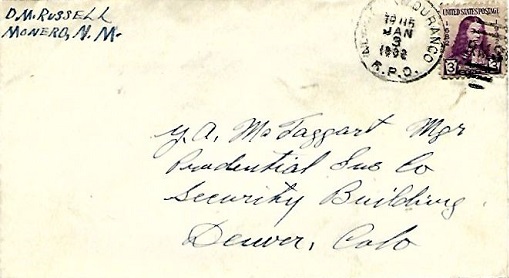 D.M. RUSSELL
MONERO, N. M.
DURANGO
JAN
3
R.P.O.
UNITED STATES POSTAGE
3 3
Y.A. McTaggart Mgr
Prudential Ins Co
Security Building
Denver, Colo